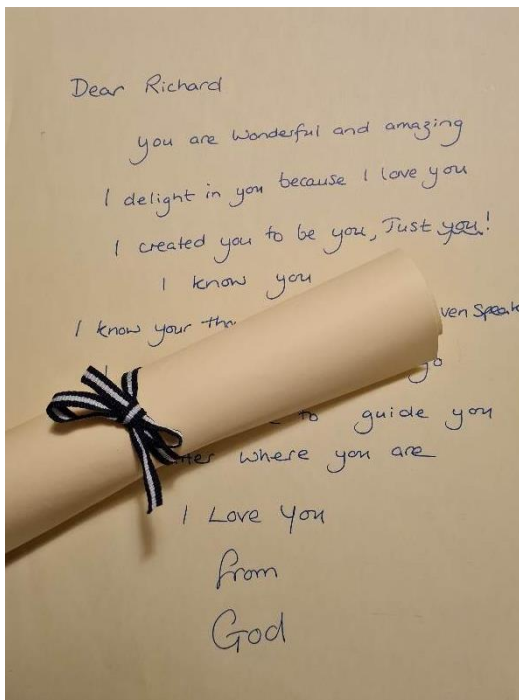 Dear Richard
you are wonderful and amazing
I delight in you because I love you
I created you to be you, Just you!
I know you
I know your
go
to guide you
where you are
I Love You
from
God